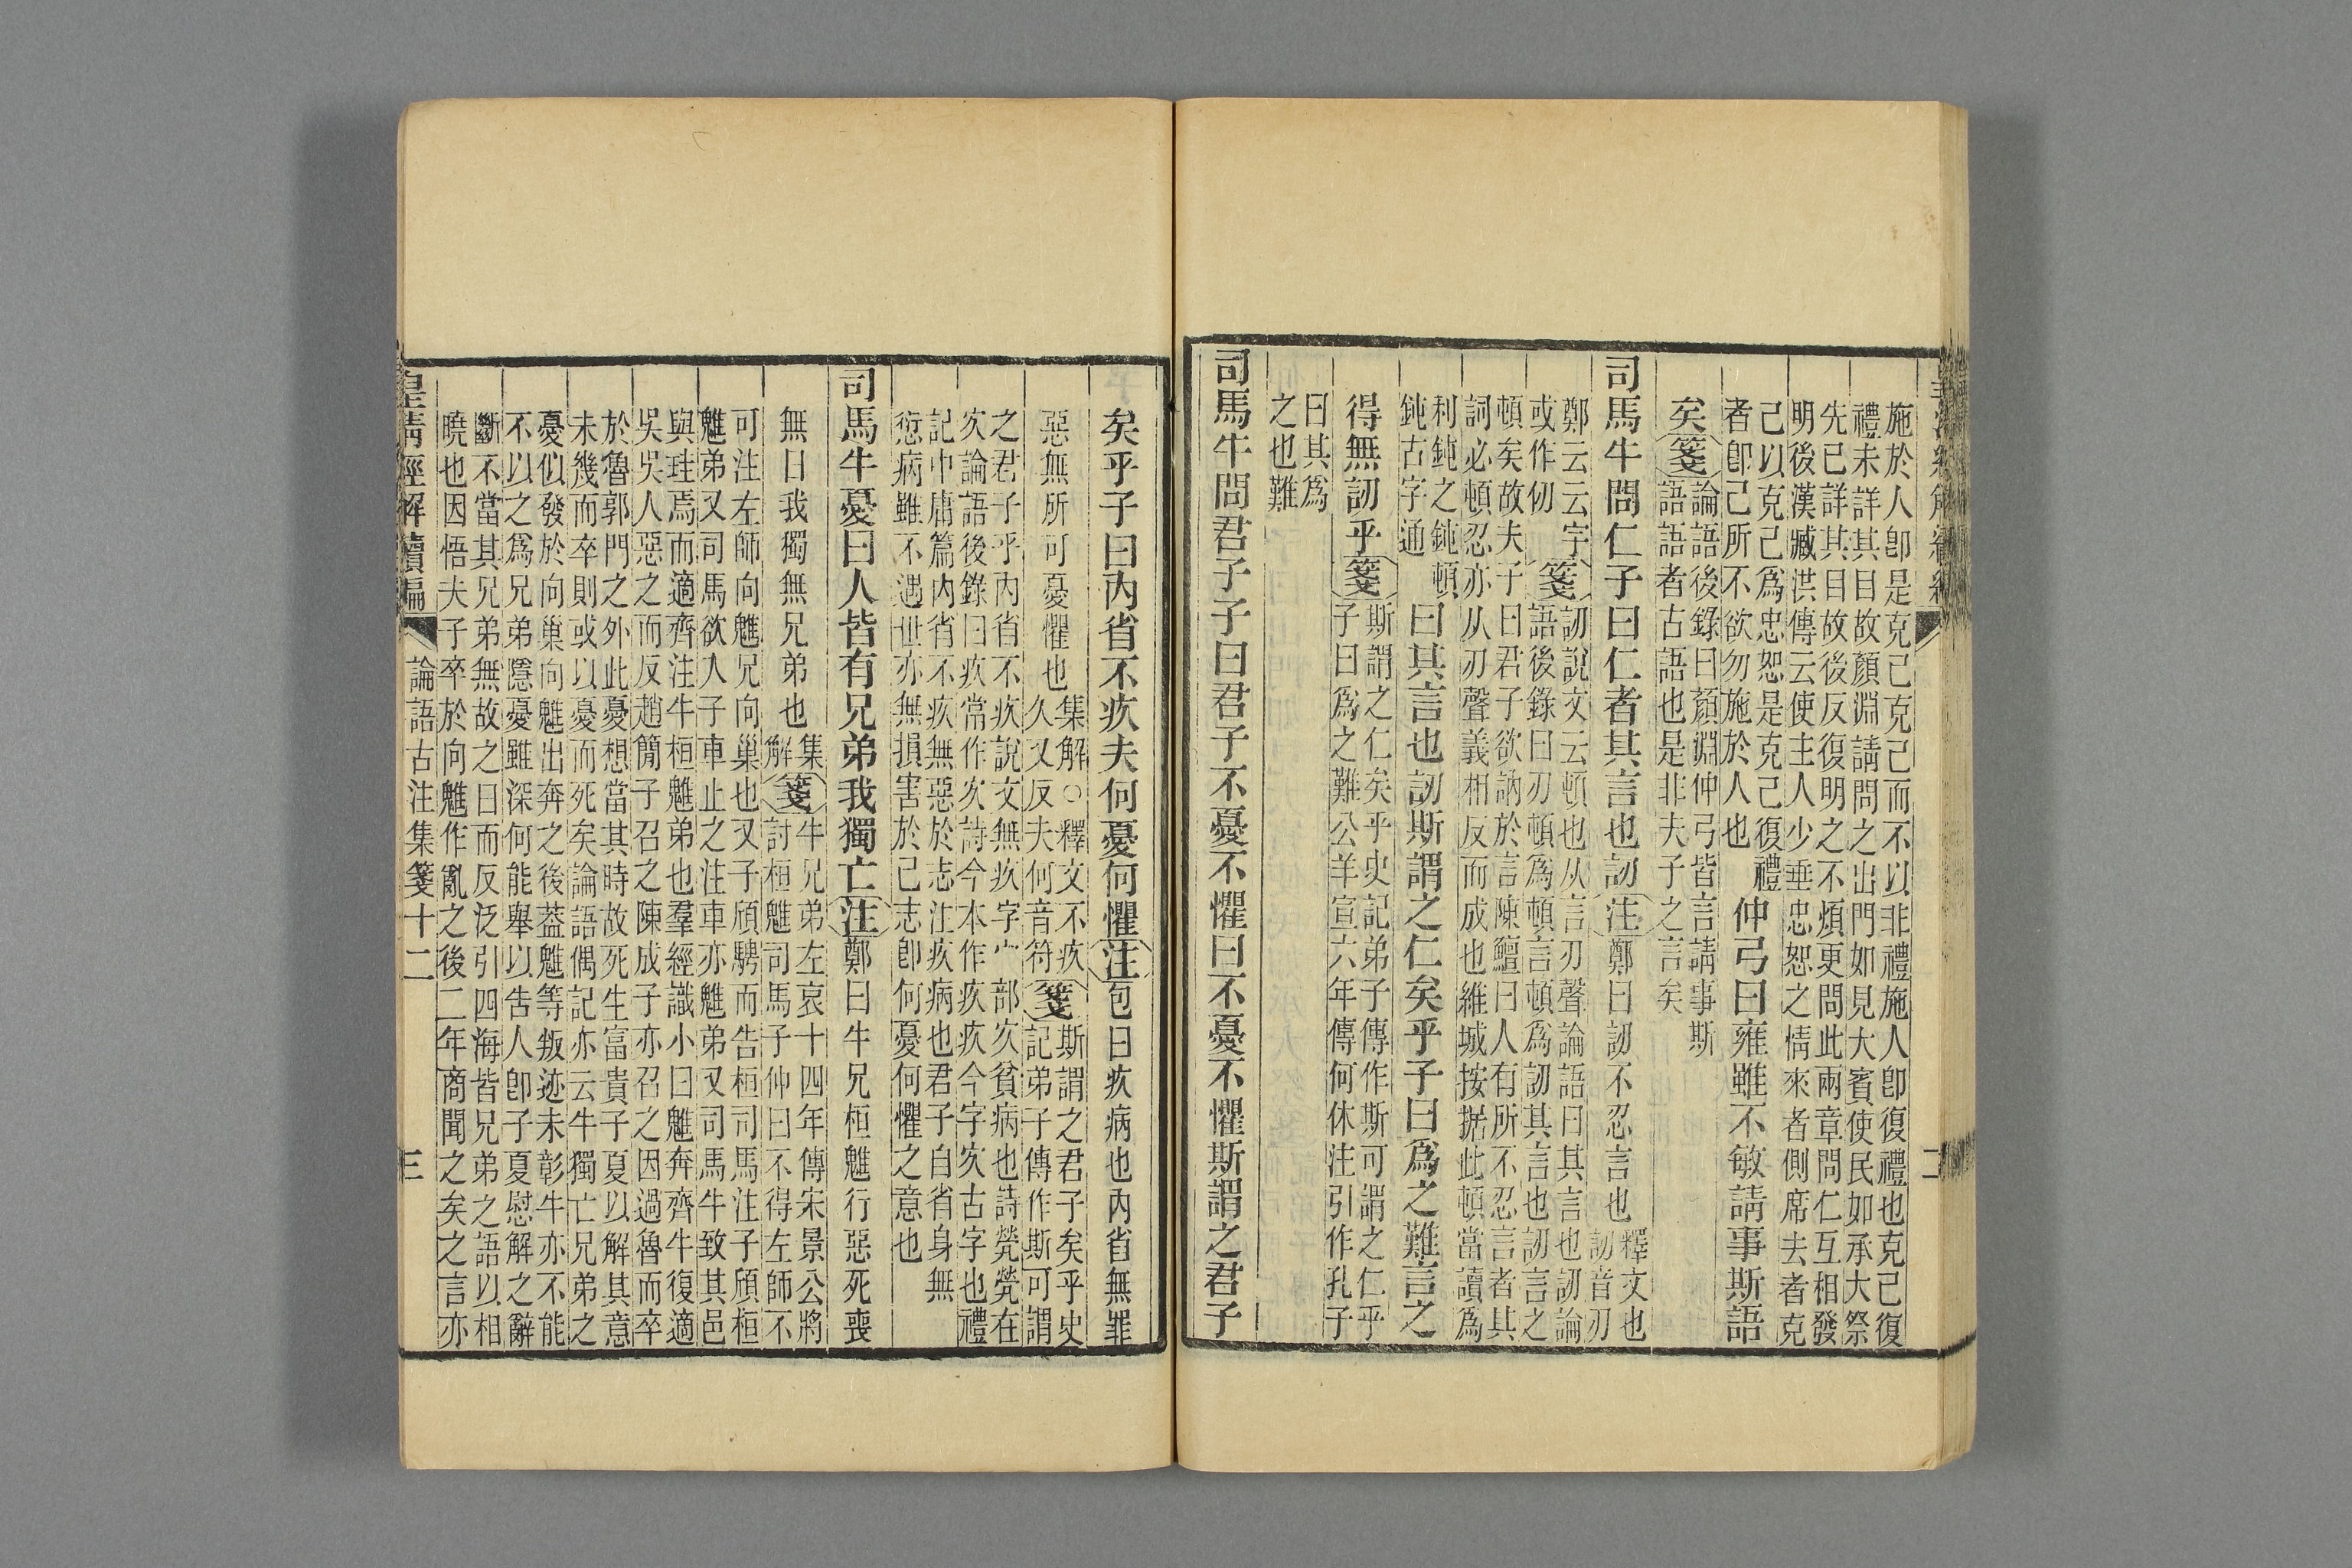 施於人卽是克己克己而不以非禮施人卽復禮也克己復
禮未詳其目故顏淵請問之出門如見大賓使民如承大祭
先已詳其目故後反復明之不煩更問此兩章問仁互相發
明後漢臧洪傳云使主人少垂忠恕之情來者側席去者克
己以克己爲忠恕是克己復禮
者卽己所不欲勿施於人也
仲弓曰雍雖不敏請事斯語
矣箋
論語後錄曰顏淵仲弓皆言請事斯
語語者古語也是非夫子之言矣
司馬牛問仁子曰仁者其言也訒注鄭曰訒不忍言也
釋文也
訒音刃
鄭云云字
或作仞
箋
訒說文云頓也从言刃聲論語曰其言也訒論
語後錄曰刃頓爲頓言頓爲訒其言也訒言之
頓矣故夫子曰君子欲訥於言陳鱣曰人有所不忍言者其
詞必頓忍亦从刃聲義相反而成也維城按据此頓當讀爲
利鈍之鈍頓
鈍古字通
曰其言也訒斯謂之仁矣乎子曰爲之難言之
得無訒乎箋
斯謂之仁矣乎史記弟子傳作斯可謂之仁乎
子曰爲之難公羊宣六年傳何休注引作孔子
曰其爲
之也難
司馬牛問君子子曰君子不憂不懼曰不憂不懼斯謂之君子
矣乎子曰內省不疚夫何憂何懼注包曰疚病也內省無罪
惡無所可憂懼也
集解○釋文不疚
久又反夫何音符
箋
斯謂之君子矣乎史
記弟子傳作斯可謂
之君子乎內省不疚說文無疚字宀部㝌貧病也詩煢煢在
㝌論語後錄曰疚當作㝌詩今本作疚疚今字㝌古字也禮
記中庸篇內省不疚無惡於志注疚病也君子自省身無
愆病雖不遇世亦無損害於己志卽何憂何懼之意也
司馬牛憂曰人皆有兄弟我獨亡注鄭曰牛兄桓魋行惡死喪
無日我獨無兄弟也
集
解
箋
牛兄弟左哀十四年傳宋景公將
討桓魋司馬子仲曰不得左師不
可注左師向魋兄向巢也又子頎騁而告桓司馬注子頎桓
魋弟又司馬欲入子車止之注車亦魋弟又司馬牛致其邑
與珪焉而適齊注牛桓魋弟也羣經識小曰魋奔齊牛復適
吳吳人惡之而反趙簡子召之陳成子亦召之因過魯而卒
於魯郭門之外此憂想當其時故死生富貴子夏以解其意
未幾而卒則或以憂而死矣論語偶記亦云牛獨亡兄弟之
憂似發於向巢向魋出奔之後葢魋等叛迹未彰牛亦不能
不以之爲兄弟隱憂雖深何能舉以告人卽子夏慰解之辭
斷不當其兄弟無故之日而反泛引四海皆兄弟之語以相
曉也因悟夫子卒於向魋作亂之後二年商聞之矣之言亦
皇清經解續編
論語古注集箋十二
三